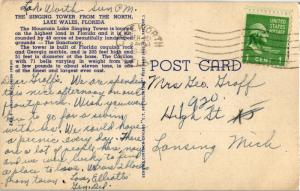 Lk Worth - Sun P.M.
THE SINGING TOWER FROM THE NORTH,
LAKE WALES, FLORIDA.
The Mountain Lake Singing Tower is located
on the highest land in Florida and is sur-
rounded by 48 acres of beautifully landscaped
grounds - The Sanctuary.
The tower is built of Florida coquina rock
and Georgia marble, and is 230 feet high and
surrounded by a moat. The Carillon
with 71 bells varying in weight from
a few pounds to about eleven tons, is one
of the finest and largest ever cast.
Dear Groffs: We are spending
this nice afternoon on our
front porch. Wish you were
here to go for a swim
with us. We could have
a picnic every day. There
are a lot of people here now
and we were lucky to find
a place to live. We are 1 block
from town. Love Elliotts
POST CARD
Mrs Geo. Groff
920
High St
Lansing Mich